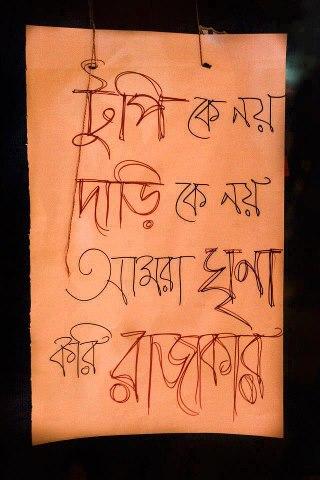 টুপি কে নয়
দাড়ি কে নয়
আমরা ঘৃনা
করি রাজাকার